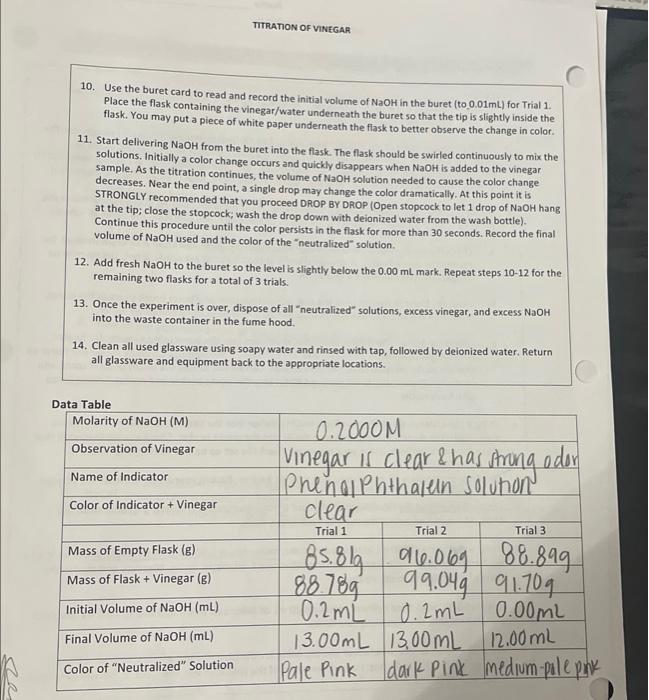 TITRATION OF VINEGAR
10. Use the buret card to read and record the initial volume of NaOH in the buret (to 0.01mL) for Trial 1.
Place the flask containing the vinegar/water underneath the buret so that the tip is slightly inside the
flask. You may put a piece of white paper underneath the flask to better observe the change in color.
11. Start delivering NaOH from the buret into the flask. The flask should be swirled continuously to mix the
solutions. Initially a color change occurs and quickly disappears when NaOH is added to the vinegar
sample. As the titration continues, the volume of NaOH solution needed to cause the color change
decreases. Near the end point, a single drop may change the color dramatically. At this point it is
STRONGLY recommended that you proceed DROP BY DROP (Open stopcock to let 1 drop of NaOH hang
at the tip; close the stopcock; wash the drop down with deionized water from the wash bottle).
Continue this procedure until the color persists in the flask for more than 30 seconds. Record the final
volume of NaOH used and the color of the "neutralized" solution.
12. Add fresh NaOH to the buret so the level is slightly below the 0.00 mL mark. Repeat steps 10-12 for the
remaining two flasks for a total of 3 trials.
13. Once the experiment is over, dispose of all "neutralized" solutions, excess vinegar, and excess NaOH
into the waste container in the fume hood.
14. Clean all used glassware using soapy water and rinsed with tap, followed by deionized water. Return
all glassware and equipment back to the appropriate locations.
Data Table
Molarity of NaOH (M) 0.2000M
Observation of Vinegar Vinegar is clear & has strong odor
Name of Indicator Phenolphthalein solution
Color of Indicator + Vinegar clear
Trial 1 Trial 2 Trial 3
Mass of Empty Flask (g) 85.81g 96.06g 88.89g
Mass of Flask + Vinegar (g) 88.78g 99.04g 91.70g
Initial Volume of NaOH (mL) 0.2mL 0.2mL 0.00mL
Final Volume of NaOH (mL) 13.00mL 13.00mL 12.00mL
Color of "Neutralized" Solution Pale Pink dark Pink medium-pale pink